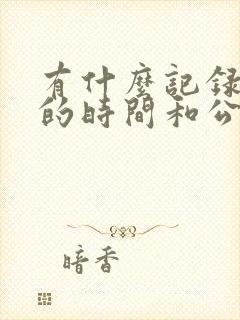 有什麼記錄
的時間和公
暗香